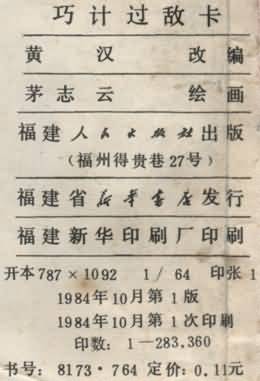 巧计过敌卡
黄汉 改编
茅志云 绘画
福建人民出版社出版
(福州得贵巷27号)
福建省新华书店发行
福建新华印刷厂印刷
开本787×1092 1/64 印张1
1984年10月第1版
1984年10月第1次印刷
印数: 1—283,360
书号: 8173·764 定价: 0.11元